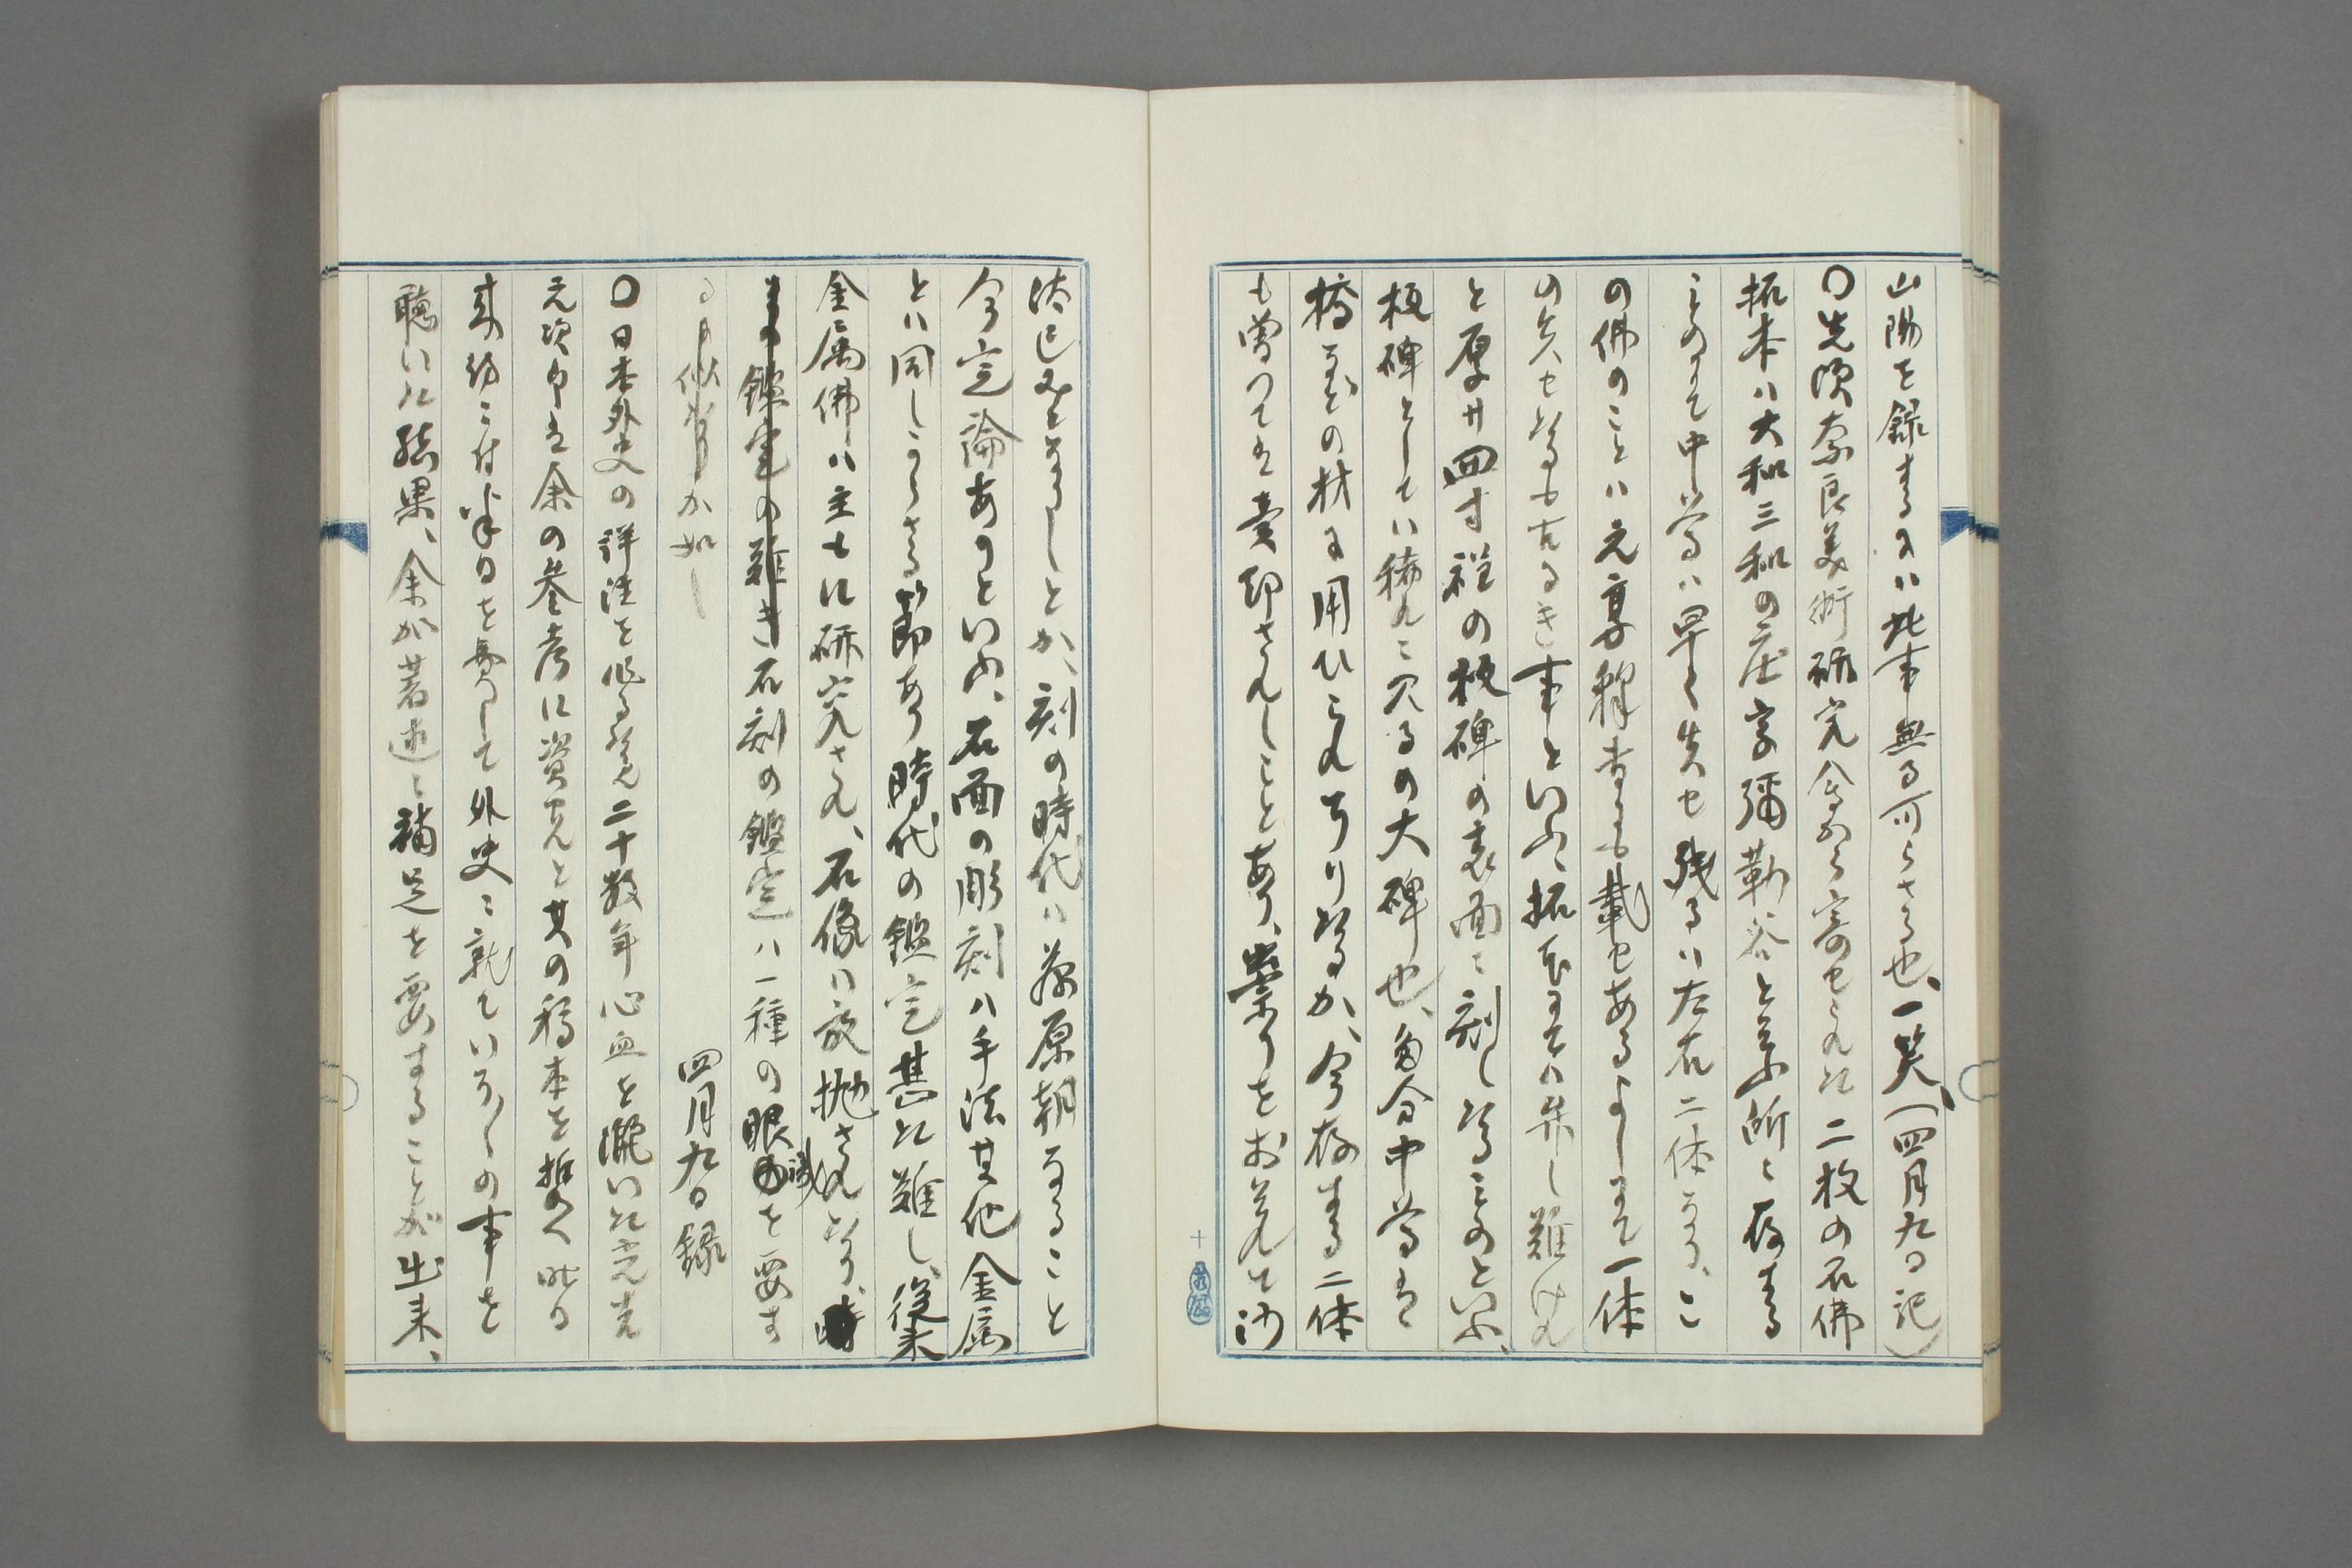 山陽を録するには此事無る可らさる也、一笑、(四月九日記)
〇先頃奈良美術研究会から寄せられた二枚の石佛
拓本ハ大和三和の庄字彌勒谷と云ふ所に存する
ものにて中尊は早く失せ残るハ左右二体なり、こ
の佛のことハ元亨釋書にも載せあるよしにて一体
の失せたるも古るき事といふ、拓本にてハ弁し難けれ
と厚サ四寸程の板碑の表面に刻したるものといふ、
板碑としてハ稀れに見るの大碑也、多分中尊は
橋などの材に用ひられたりたるか、今存する二体
も曽つては売却されしことあり、祟りをおそれて沙
汰已みとなりしとか、刻の時代ハ藤原朝なること
今定論ありといふ、石面の彫刻ハ手法其他金属
とハ同しからさる節あり時代の鑑定甚た難し、従来
金属佛ハ主もに研究され、石像ハ放抛されたり、
石刻の鑑定ハ一種の眼識を要す
るものか如し
四月九日録
〇日本外史の詳註を作る為二十数年心血を灑いた光吉
元次郎は余の参考に資せんと其の稿本を携へ昨日
来訪に付半日を費して外史に就ていろ〱の事を
聴いた結果、余が著述に補足を要することが出来、